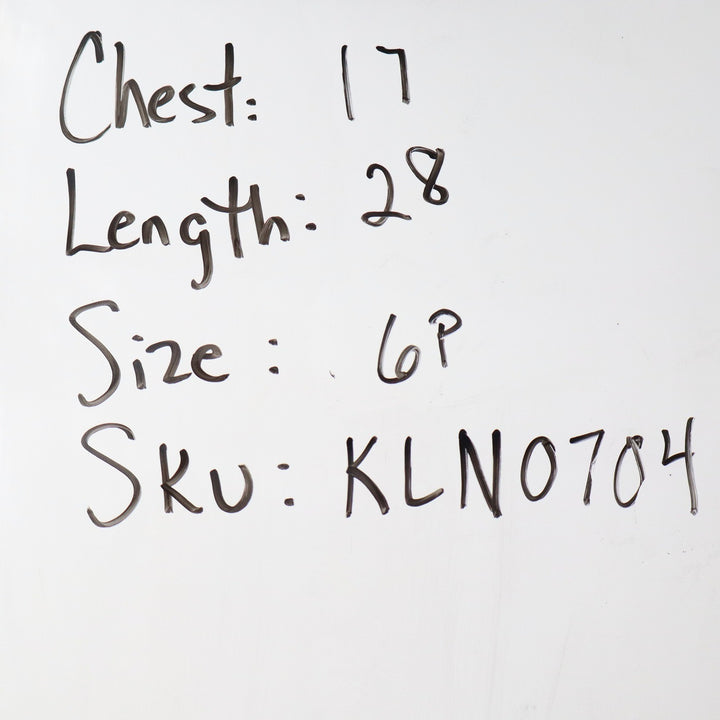 Chest: 17
Length: 28
Size: 6P
SKU: KLN0704